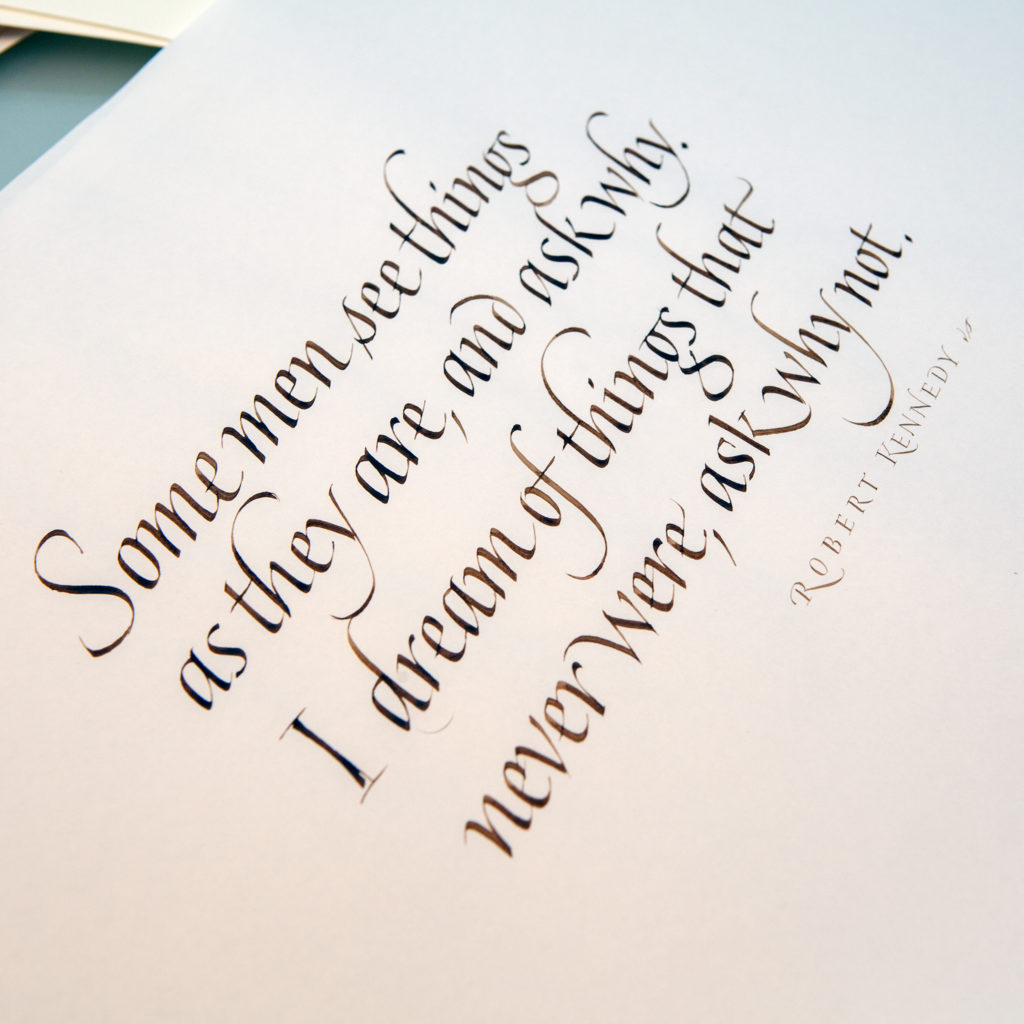 Some men see things
as they are, and ask why.
I dream of things that
never were, ask why not.
ROBERT KENNEDY